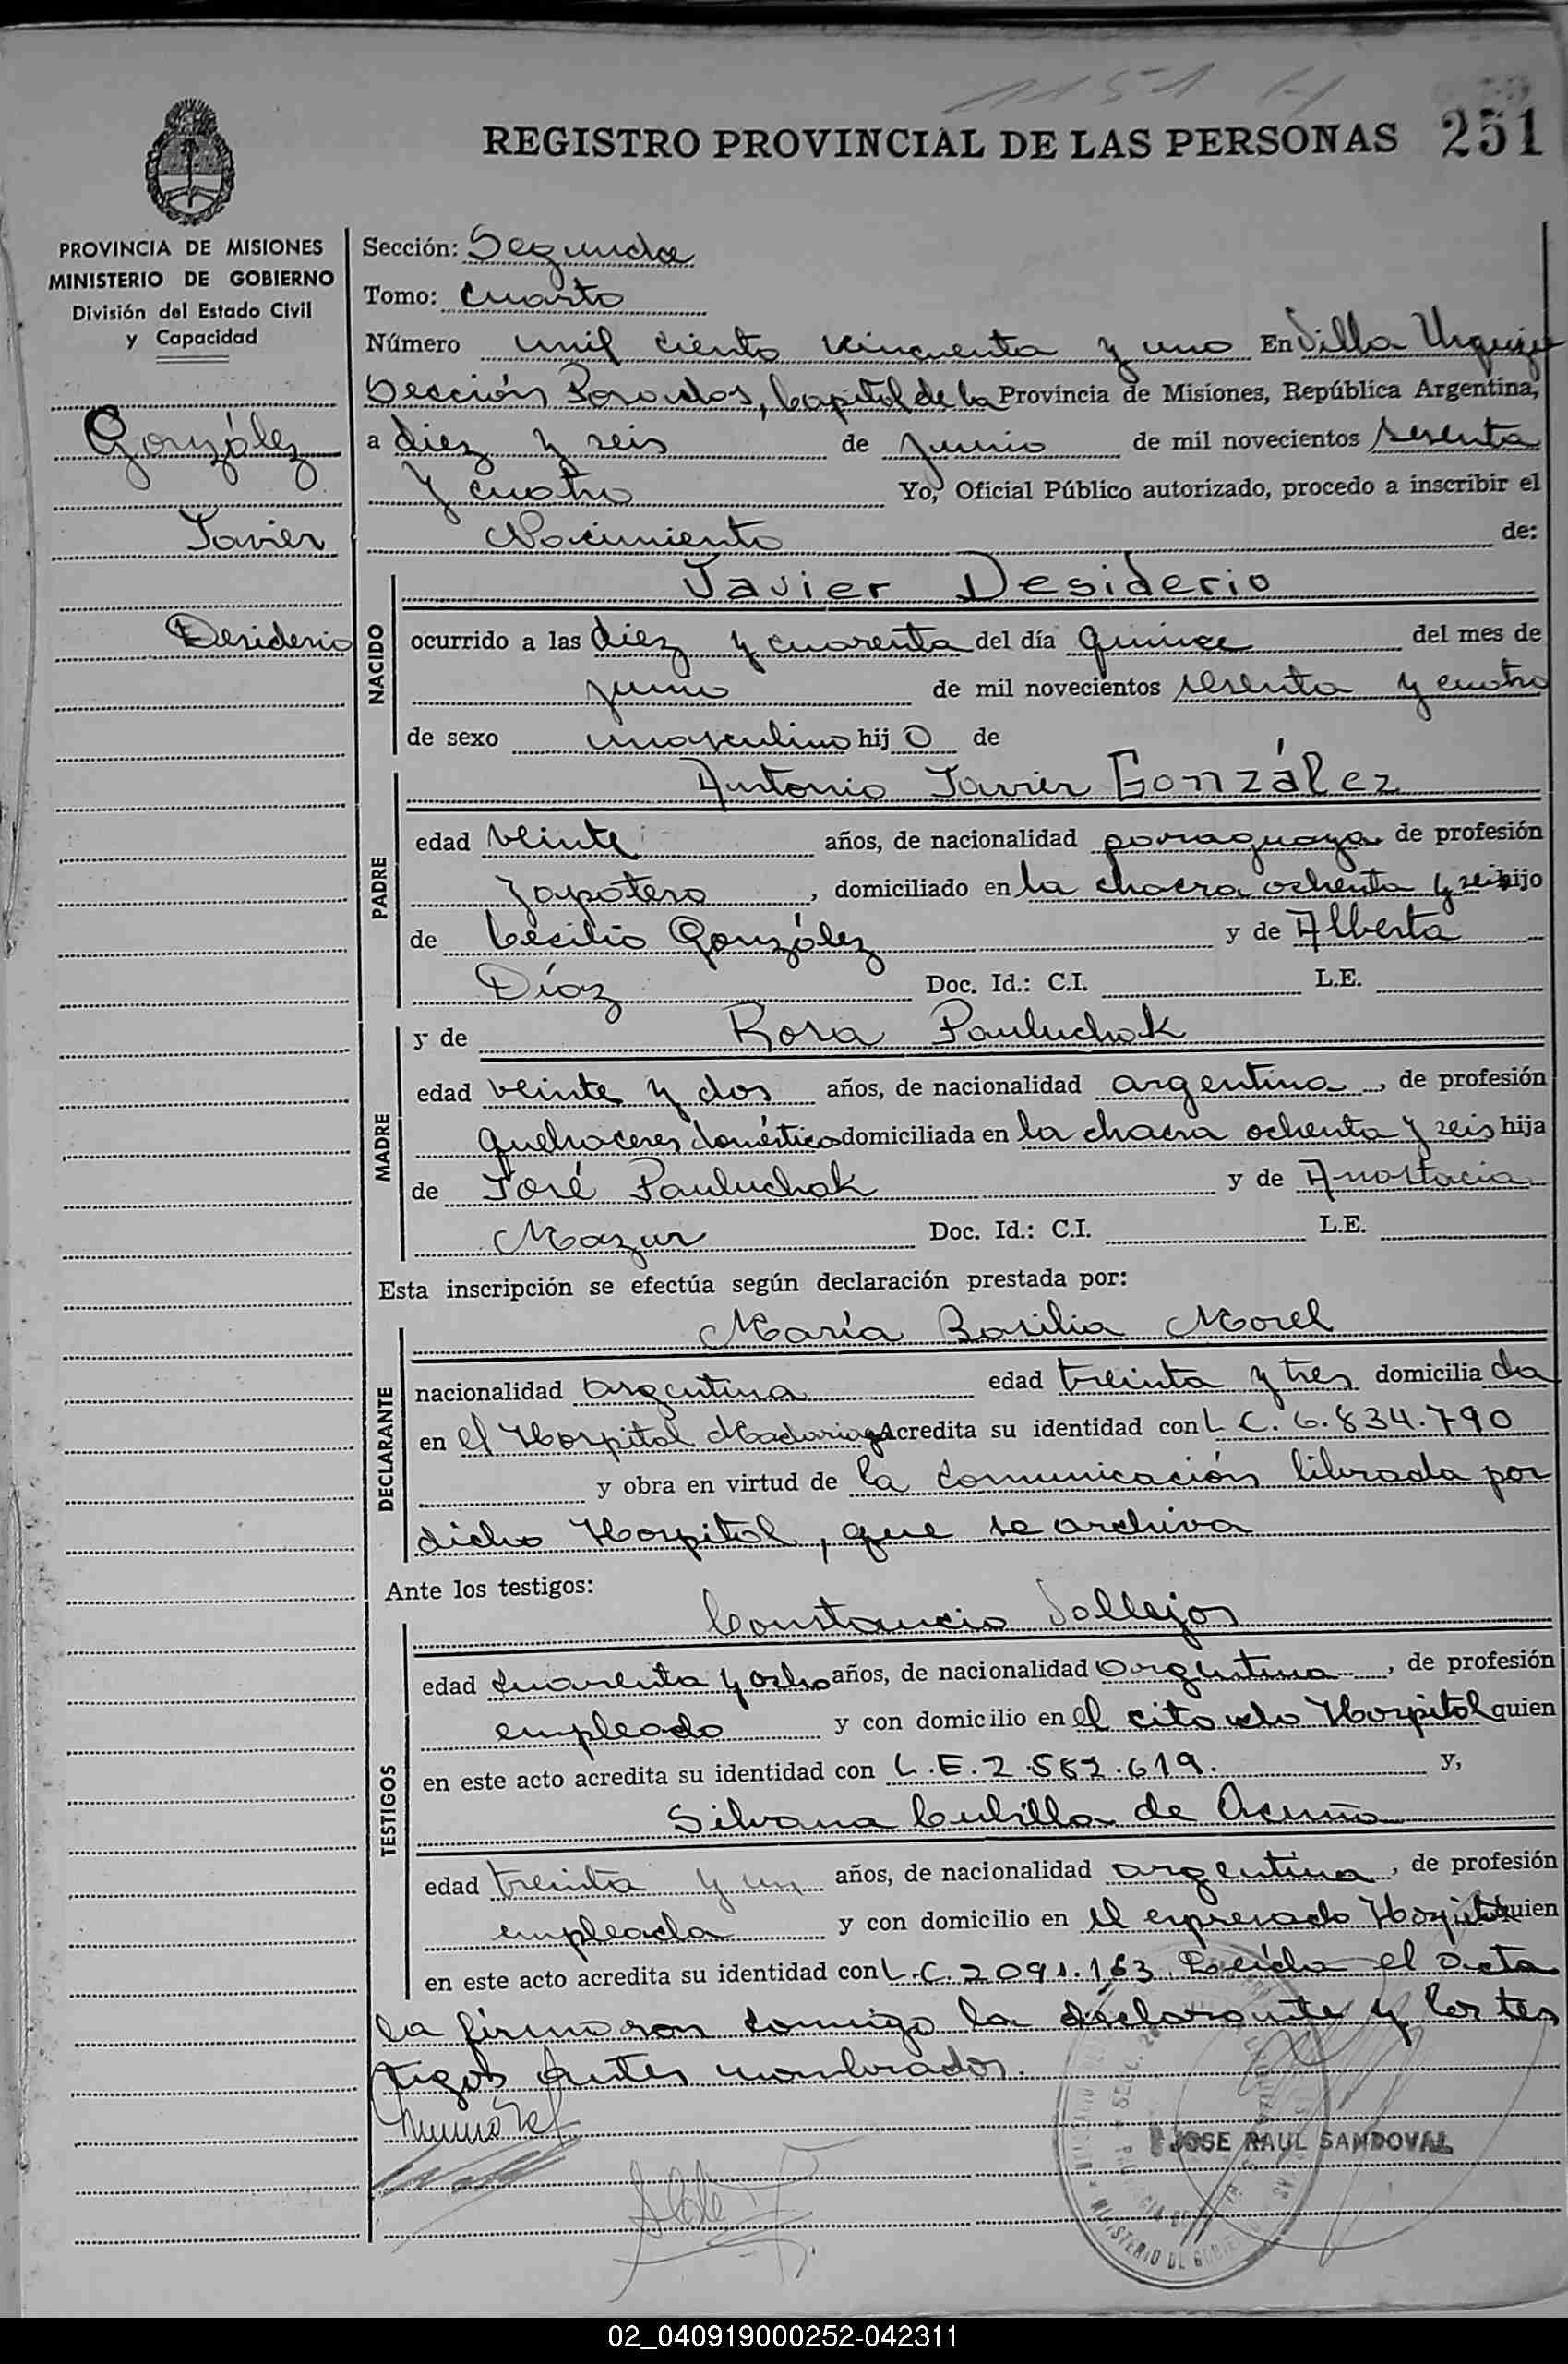 1151 H
REGISTRO PROVINCIAL DE LAS PERSONAS 251
PROVINCIA DE MISIONES
MINISTERIO DE GOBIERNO
División del Estado Civil
y Capacidad
González
Javier
Desiderio
Sección: Segunda
Tomo: Cuarto
Número mil ciento cincuenta y uno En Villa Urquiza
Sección Posadas, Capital de la Provincia de Misiones, República Argentina,
a diez y seis de junio de mil novecientos sesenta
y cuatro Yo, Oficial Público autorizado, procedo a inscribir el
Nacimiento de:
NACIDO
Javier Desiderio
ocurrido a las diez y cuarenta del día quince del mes de
junio de mil novecientos sesenta y cuatro
de sexo masculino hijo de
PADRE
Antonio Javier González
edad veinte años, de nacionalidad paraguaya de profesión
zapatero, domiciliado en la chacra ochenta y seis hijo
de Cecilio González y de Alberta
Díaz Doc. Id.: C.I. L.E.
MADRE
y de Rosa Pauluchak
edad veinte y dos años, de nacionalidad argentina, de profesión
quehaceres domésticos domiciliada en la chacra ochenta y seis hija
de José Pauluchak y de Anastacia
Mazur Doc. Id.: C.I. L.E.
Esta inscripción se efectúa según declaración prestada por:
DECLARANTE
María Basilia Morel
nacionalidad argentina edad treinta y tres domiciliada
en el Hospital Madariaga Acredita su identidad con L C. 6.834.790
y obra en virtud de la comunicación librada por
dicho Hospital, que se archiva
Ante los testigos:
TESTIGOS
Constancio Vallejos
edad cuarenta y ocho años, de nacionalidad argentina, de profesión
empleado y con domicilio en el citado Hospital quien
en este acto acredita su identidad con L.E. 2.582.619. y,
Silvana Cubilla de Acuña
edad treinta y un años, de nacionalidad argentina, de profesión
empleada y con domicilio en el expresado Hospital quien
en este acto acredita su identidad con L.C. 2091.163 Leída el acta
la firmaron conmigo la declarante y los tes
tigos antes nombrados.
JOSE RAUL SANDOVAL
MINISTERIO DE GOBIERNO
02_040919000252-042311